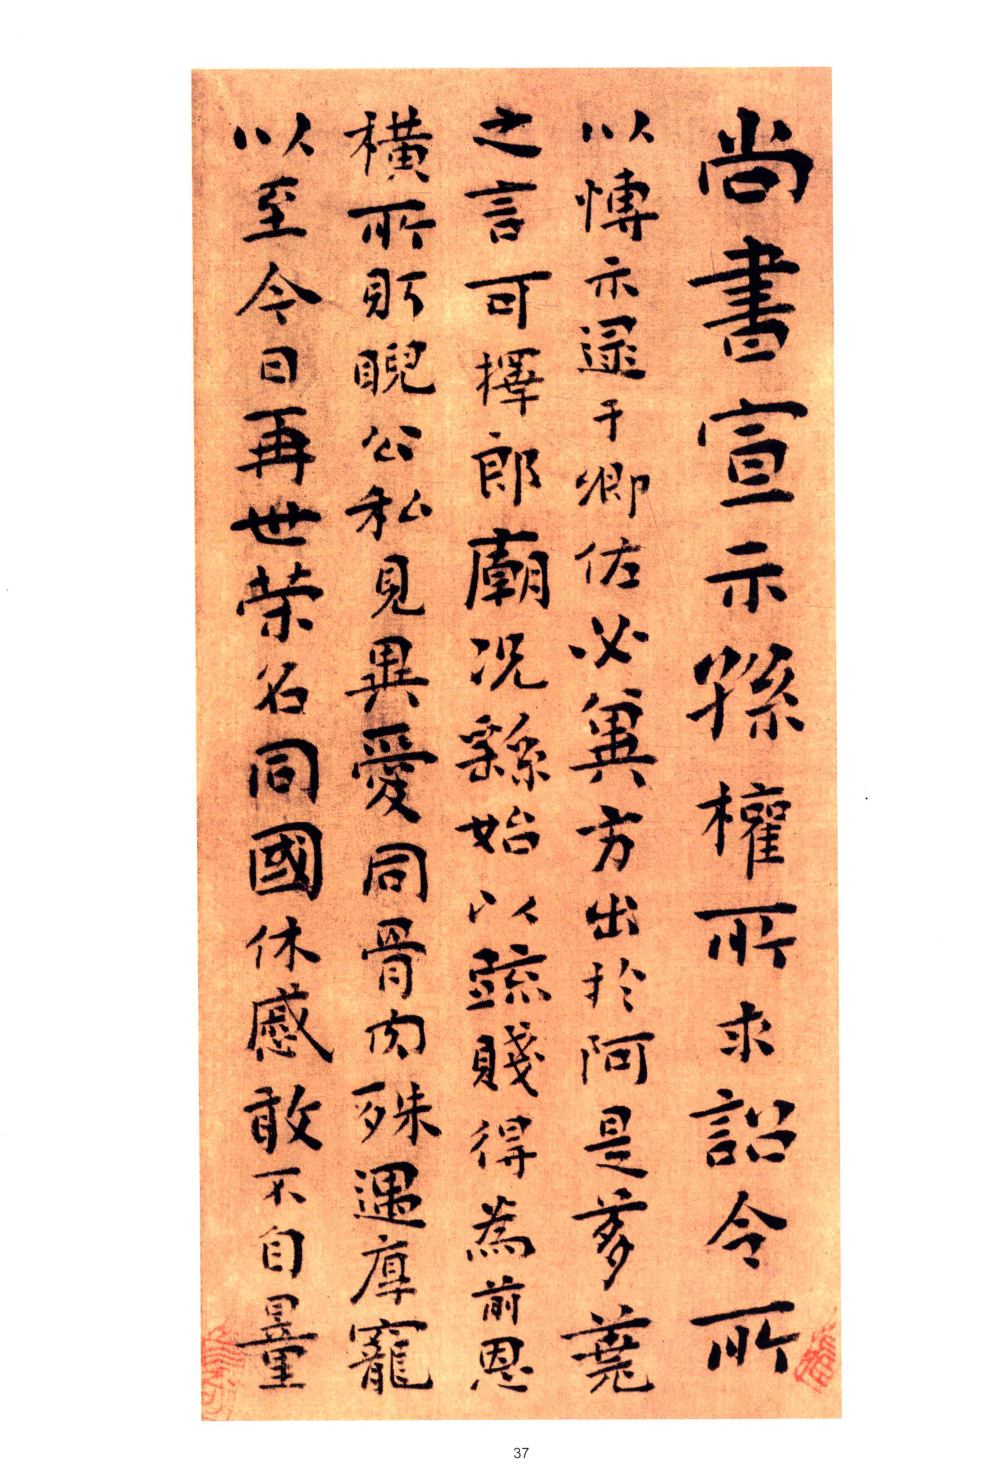 尚書宣示孫權所求詔令所
以博示逮于卿佐必冀方出於阿是芻蕘
之言可擇郎廟况繇始以疏賤得為前恩
橫所盻睨公私見異愛同骨肉殊遇厚寵
以至今日再世榮名同國休慼敢不自量
37